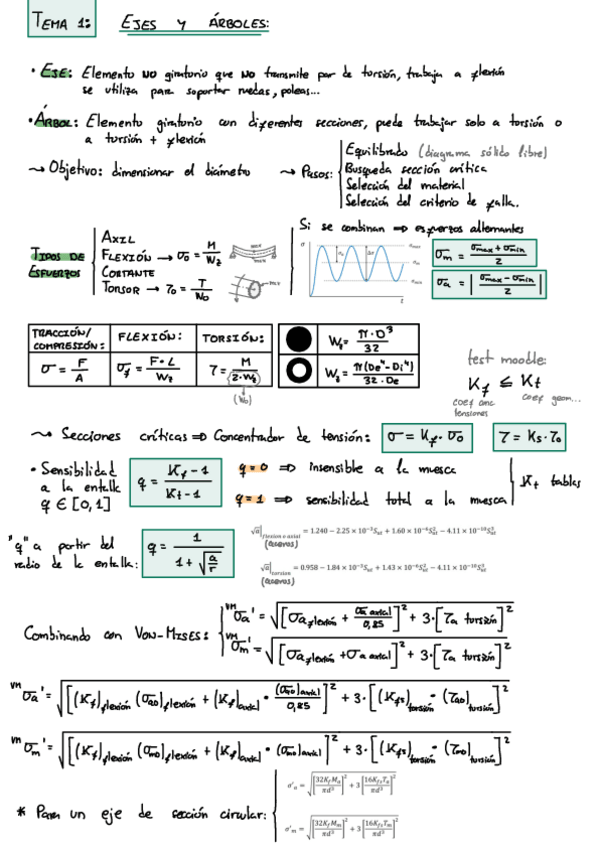 TEMA 1: EJES Y ÁRBOLES:
• EJE: Elemento NO giratorio que NO transmite par de torsión, trabaja a flexión
se utiliza para soportar ruedas, poleas...
• ÁRBOL: Elemento giratorio con diferentes secciones, puede trabajar solo a torsión o
a torsión + flexión
⤳ Objetivo: dimensionar el diámetro
⤳ Pasos:
Equilibrado (diagrama sólido libre)
Busqueda sección crítica
Selección del material
Selección del criterio de falla.
TIPOS DE ESFUERZOS
AXIL
FLEXIÓN → σ₀ = M/Wz
CORTANTE
TORSOR → τ₀ = T/W₀
Si se combinan ⇒ esfuerzos alternantes
σm = (σmax + σmin)/2
σa = |(σmax − σmin)/2|
TRACCIÓN/COMPRESIÓN: FLEXIÓN: TORSIÓN:
σ = F/A σf = F·L/Wz τ = M/(2·Wz)
(W₀)
Wz = π·D³/32
Wz = π(De⁴−Di⁴)/(32·De)
test moodle:
Kf ≤ Kt
coef conc tensiones
coef geom...
⤳ Secciones críticas ⇒ Concentrador de tensión: σ = Kf·σ₀ τ = Ks·τ₀
• Sensibilidad a la entalla q ∈ [0,1]
q = (Kf − 1)/(Kt − 1)
q=0 ⇒ insensible a la muesca
q=1 ⇒ sensibilidad total a la muesca
Kt tablas
"q" a partir del radio de la entalla:
q = 1/(1 + √(a/r))
√a|flexion o axial = 1.240 − 2.25 × 10⁻³Sut + 1.60 × 10⁻⁶S²ut − 4.11 × 10⁻¹⁰S³ut
(aceros)
√a|torsion = 0.958 − 1.84 × 10⁻³Sut + 1.43 × 10⁻⁶S²ut − 4.11 × 10⁻¹⁰S³ut
(aceros)
Combinando con VON-MISES:
VM σa' = √([σa flexión + σa axial/0,85]² + 3·[τa torsión]²)
VM σm' = √([σa flexión + σa axial]² + 3·[τa torsión]²)
VM σa' = √([(Kf)flexión (σa0)flexión + (Kf)axial · (σa0)axial/0,85]² + 3·[(Kfs)torsión · (τa0)torsión]²)
VM σm' = √([(Kf)flexión (σm0)flexión + (Kf)axial · (σm0)axial]² + 3·[(Kfs)torsión · (τm0)torsión]²)
* Para un eje de sección circular:
σ'a = √([32KfMa/πd³]² + 3[16KfsTa/πd³]²)
σ'm = √([32KfMm/πd³]² + 3[16KfsTm/πd³]²)